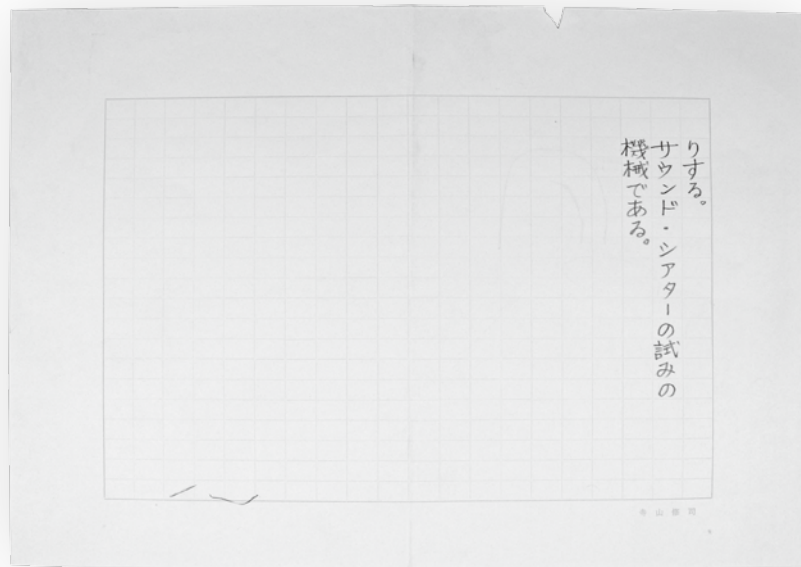 りする。
サウンド・シアターの試みの
機械である。
寺山修司